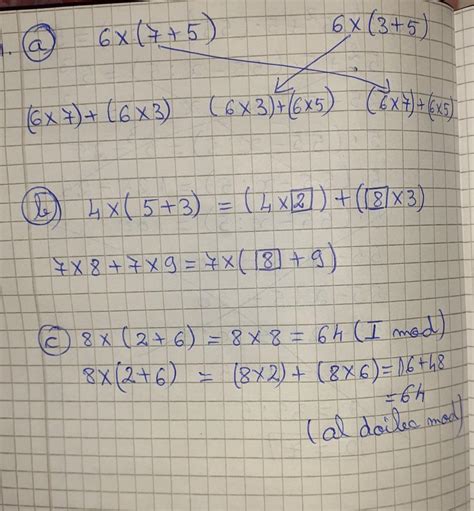 1. a) 6×(7+5) 6×(3+5)
(6×7)+(6×3) (6×3)+(6×5) (6×7)+(6×5)
b) 4×(5+3) = (4×2)+(8×3)
7×8+7×9=7×(8+9)
c) 8×(2+6)=8×8=64 (I mod)
8×(2+6) = (8×2)+(8×6)=16+48
=64
(al doilea mod)